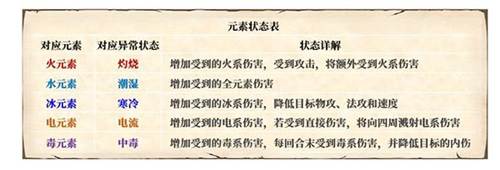 元素状态表
对应元素 对应异常状态 状态详解
火元素 灼烧 增加受到的火系伤害，受到攻击，将额外受到火系伤害
水元素 潮湿 增加受到的全元素伤害
冰元素 寒冷 增加受到的冰系伤害，降低目标物攻、法攻和速度
电元素 电流 增加受到的电系伤害，若受到直接伤害，将向四周溅射电系伤害
毒元素 中毒 增加受到的毒系伤害，每回合末受到毒系伤害，并降低目标的内伤